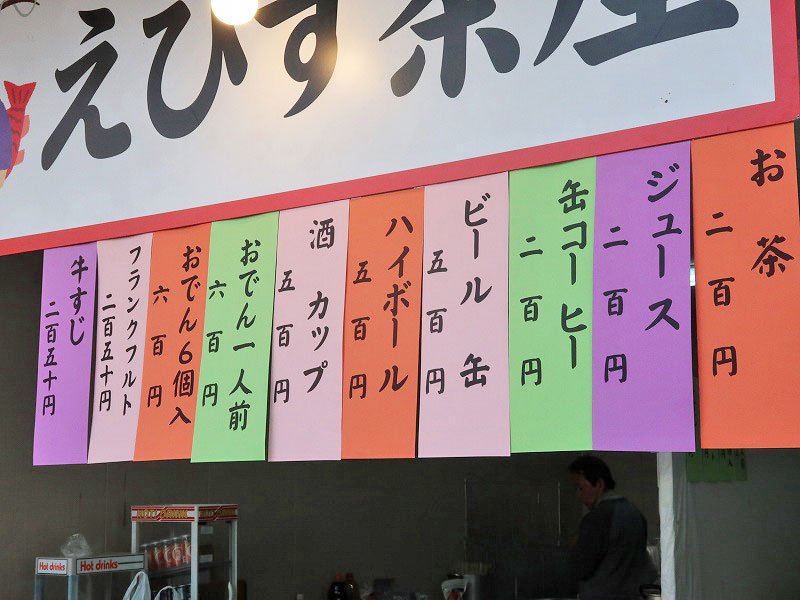 えびす茶屋
お茶
二百円
ジュース
二百円
缶コーヒー
二百円
ビール 缶
五百円
ハイボール
五百円
酒 カップ
五百円
おでん一人前
六百円
おでん6個入
六百円
フランクフルト
二百五十円
牛すじ
二百五十円
Hot drinks
Hot drinks